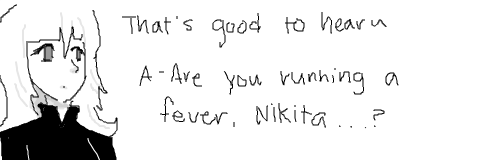 That's good to hear
A-Are you running a
fever, Nikita...?